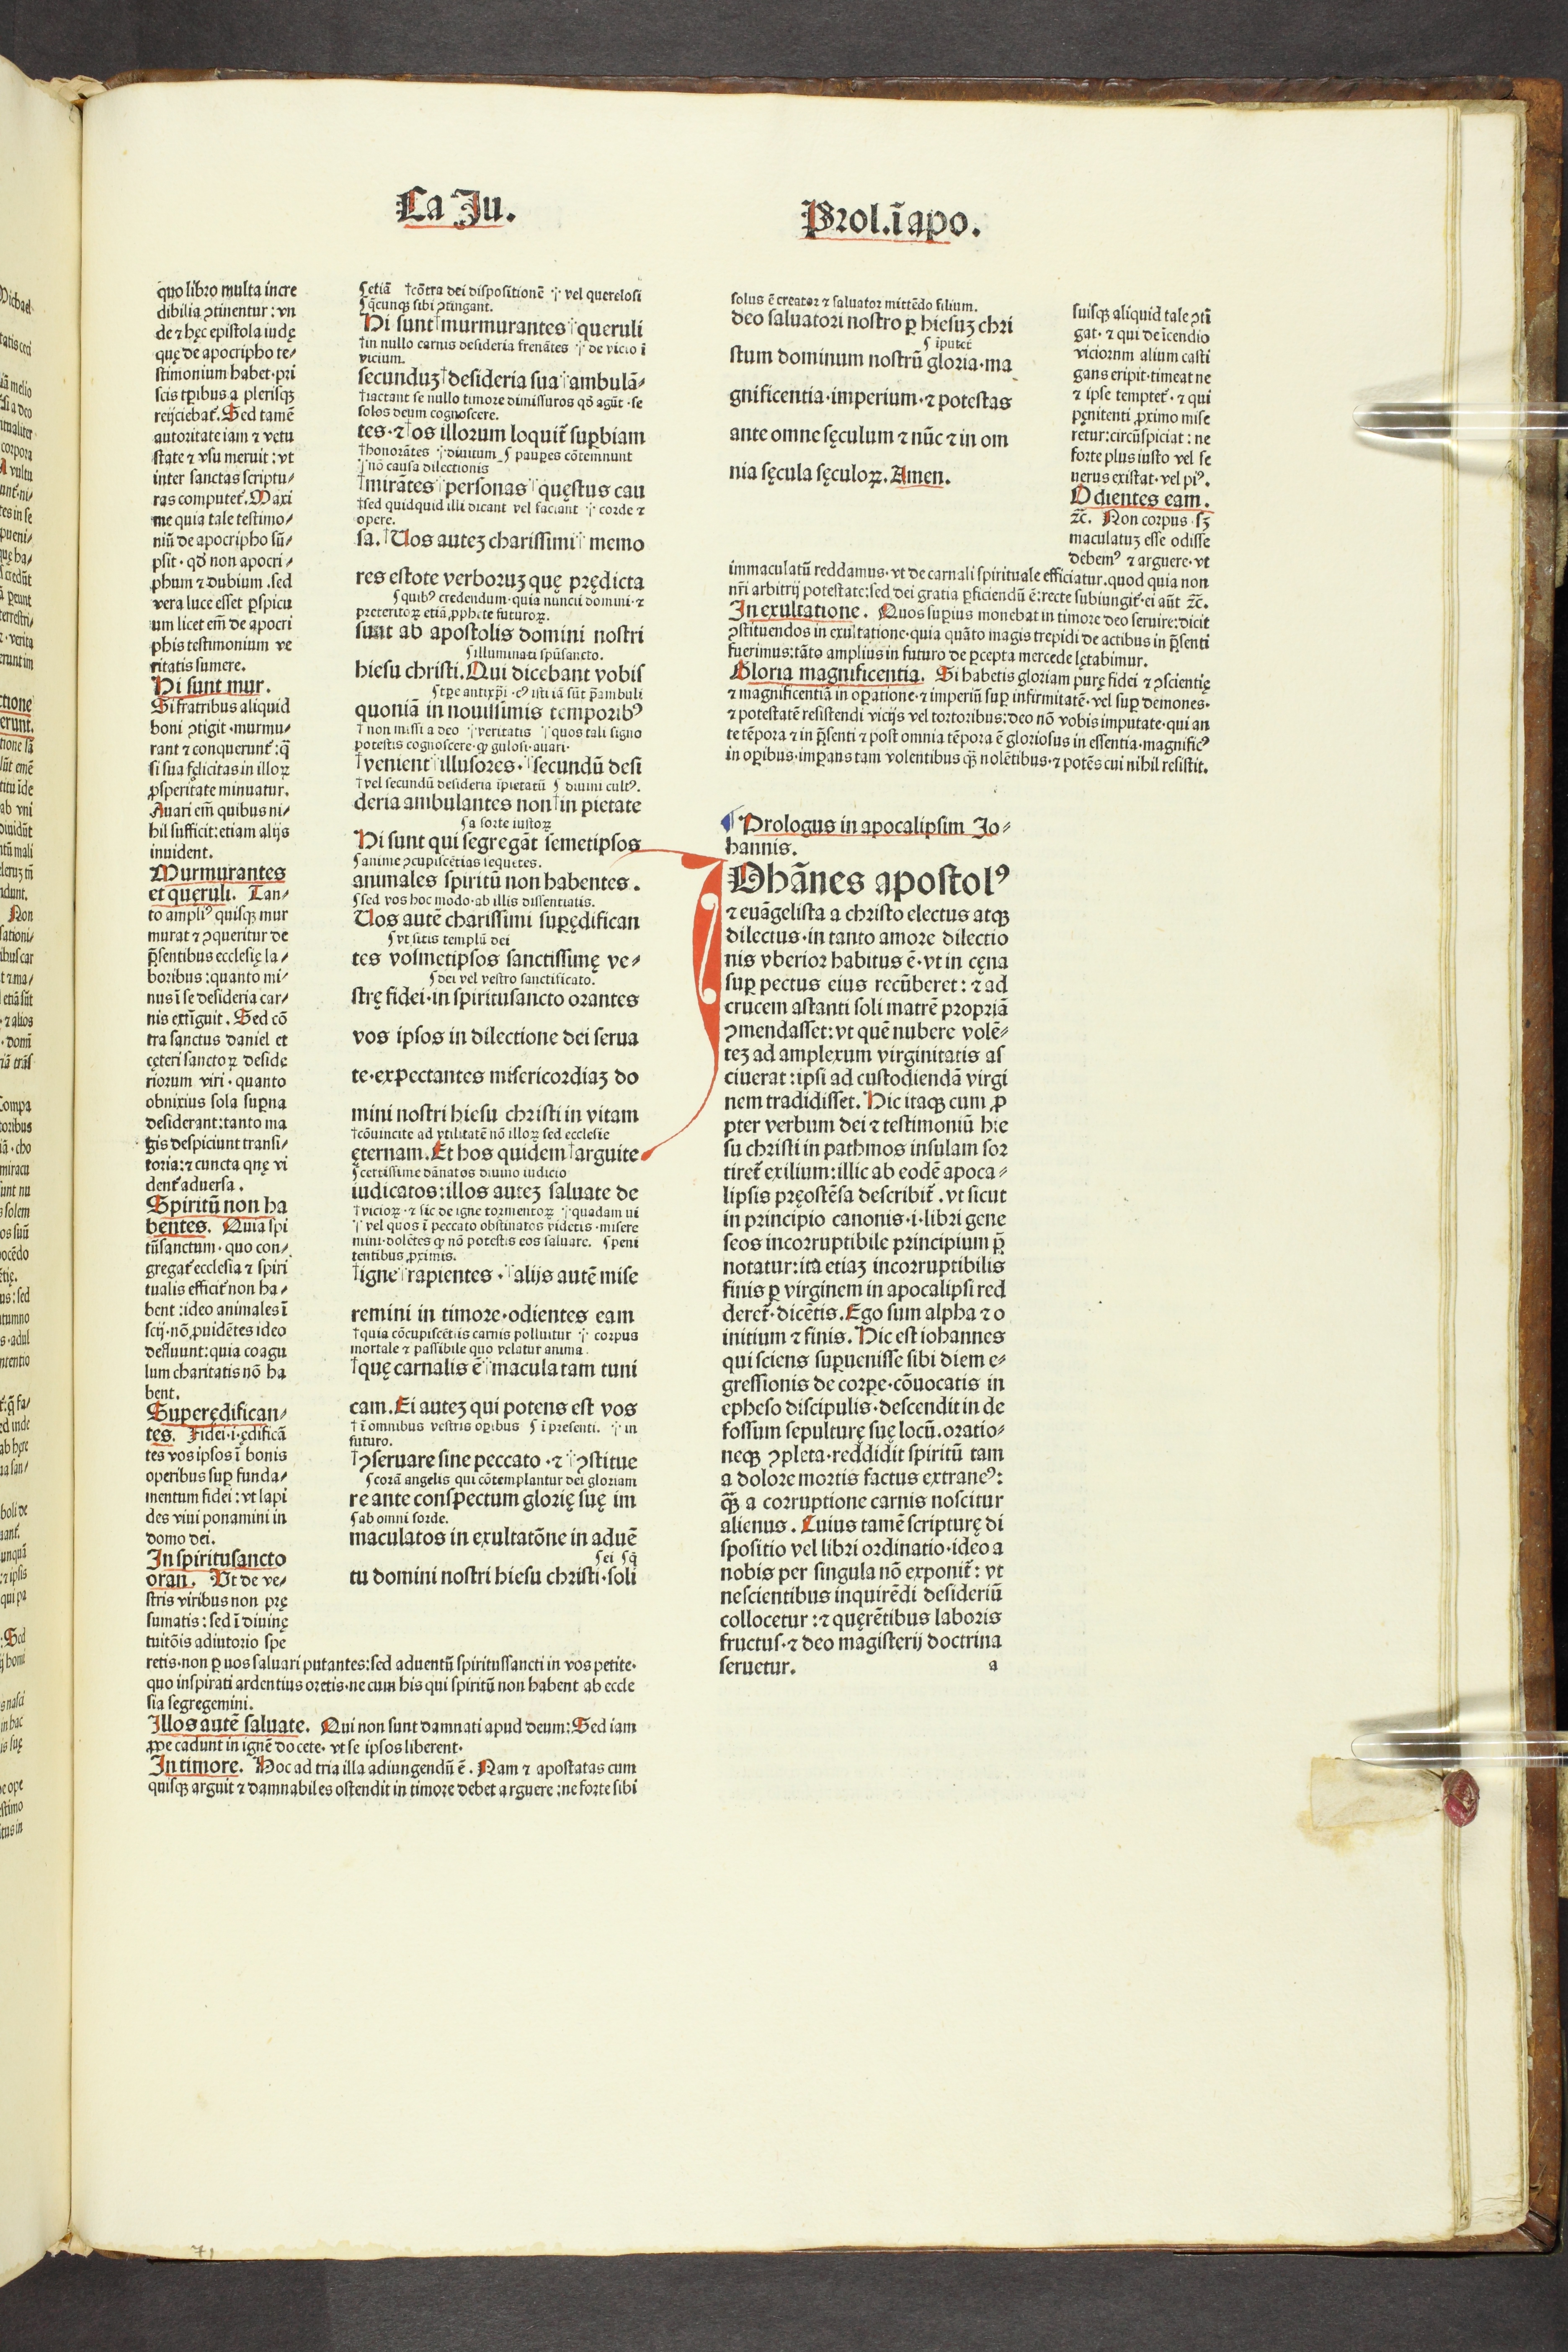 Ca Ju.
Prol.ī apo.
quo libro multa incre
dibilia ꝯtinentur : vn
de ⁊ hęc epistola iudę
quę de apocripho te-
stimonium habet·pri
scis tꝑibus a plerisqꝫ
reijciebat᷑. Sed tamē
autoritate iam ⁊ vetu
state ⁊ vsu meruit : vt
inter sanctas scriptu-
ras computet᷑. Maxi
me quia tale testimo-
niū de apocripho sū-
psit · qđ non apocri-
phum ⁊ dubium .sed
vera luce esset ꝑspicu
um licet em̄ de apocri
phis testimonium ve
ritatis sumere.
Hi sunt mur.
Si fratribus aliquid
boni ꝯtigit ·murmu-
rant ⁊ conquerunt᷑:q̄
si sua fęlicitas in illoꝝ
ꝓsperitate minuatur.
Auari em̄ quibus ni-
hil sufficit:etiam alijs
inuident.
Murmurantes
et quęruli. Tan-
to ampliꝰ quisqꝫ mur
murat ⁊ ꝯqueritur de
p̄sentibus ecclesię la-
boribus :quanto mi-
nus ī se desideria car-
nis extīguit. Sed cō
tra sanctus daniel et
cęteri sanctoꝝ deside
riorum viri · quanto
obnixius sola suꝑna
desiderant:tanto ma
gis despiciunt transi-
toria:⁊ cuncta qnę vi
dent᷑ aduersa.
Spiritū non ha
bentes. Quia spi
tūsanctum · quo con-
gregat᷑ ecclesia ⁊ spiri
tualis efficit᷑ non ha-
bent :ideo animales ī
scij·nō ꝓuidētes ideo
defluunt:quia coagu
lum charitatis nō ha
bent.
Superędifican-
tes. Fidei·i·ędificā
tes vos ipsos ī bonis
operibus suꝑ funda-
mentum fidei : vt lapi
des viui ponamini in
domo dei.
In spiritusancto
oran. Vt de ve-
stris viribus non prę
sumatis : sed ī diuinę
tuitōis adiutorio spe
retis·non ꝑ uos saluari putantes:sed aduentū spiritussancti in vos petite·
quo inspirati ardentius oretis·ne cum his qui spiritū non habent ab eccle
sia segregemini.
Illos autē saluate. Qui non sunt damnati apud deum:Sed iam
ꝓpe cadunt in ignē docete· vt se ipsos liberent·
In timore. Hoc ad tria illa adiungendū ē. Nam ⁊ apostatas cum
quisqꝫ arguit ⁊ damnabiles ostendit in timore debet arguere :ne forte sibi
ʕetiā †cōtra dei dispositionē ·|· vel querelosi
ʕq̄cunqꝫ sibi ꝯtingant.
Hi sunt†murmurantes·|·queruli
†in nullo carnis desideria frenātes ·|· de vicio ī
vicium.
secunduꝫ†desideria sua·|·ambulā-
†iactant se nullo timore dimissuros qđ agūt ·se
solos deum cognoscere.
tes·⁊†os illorum loquit᷑ suꝑbiam
†honorātes ·|·diuitum ʕ pauꝑes cōtemnunt
·|·nō causa dilectionis
†mirātes·|·personas·|·quęstus cau
†sed quidquid illi dicant vel faciant ·|· corde ⁊
opere.
sa.†Uos auteꝫ charissimi·|· memo
res estote verboruꝫ quę prędicta
ʕquibꝰ credendum·quia nuncii domini·⁊
preteritoꝝ etiā ꝓphete futuroꝝ.
sunt ab apostolis domini nostri
ʕilluminati spūsancto.
hiesu christi. Qui dicebant vobis
ʕtꝑe antixp̄i ·cꝰ isti iā sūt p̄ambuli
quoniā in nouissimis temporibꝰ
† non missi a deo ·|·veritatis ·|·quos tali signo
potestis cognoscere·ꝙ gulosi·auari·
†venient·|·illusores.·|·secundū desi
†vel secundū desideria īpietatū ʕ diuini cultꝰ.
deria ambulantes non†in pietate
ʕa sorte iustoꝝ
Hi sunt qui segregāt semetipsos
ʕanime ꝯcupiscētias sequētes.
animales spiritū non habentes.
ʕsed vos hoc modo·ab illis dissentiatis.
Uos autē charissimi suꝑędifican
ʕvt sitis templū dei
tes vosmetipsos sanctissimę ve-
ʕdei vel vestro sanctificato.
strę fidei·in spiritusancto orantes
vos ipsos in dilectione dei serua
te·expectantes misericordiaꝫ do
mini nostri hiesu christi in vitam
†cōuincite ad vtilitatē nō illoꝝ sed ecclesie
ęternam. Et hos quidem†arguite
ʕcertissime dānatos diuino iudicio
iudicatos:illos auteꝫ saluate de
†vicioꝝ ·⁊ sic de igne tormentoꝝ ·|·quadam ui
·|· vel quos ī peccato obstinatos videtis ·misere
mini·dolētes ꝙ nō potestis eos saluare. ʕpeni
tentibus ꝓximis.
†igne·|·rapientes .·|·alijs autē mise
remini in timore·odientes eam
†quia cōcupiscētiis carnis polluitur ·|· corpus
mortale ⁊ passibile quo velatur anima.
†quę carnalis ē·|·maculatam tuni
cam. Ei auteꝫ qui potens est vos
† ī omnibus vestris oꝑibus ʕ ī presenti. ·|· in
futuro.
†ꝯseruare sine peccato ·⁊·|·ꝯstitue
ʕcorā angelis qui cōtemplantur dei gloriam
re ante conspectum glorię suę im
ʕab omni sorde.
maculatos in exultatōne in aduē
ʕei ʕq̄
tu domini nostri hiesu christi·soli
solus ē creator ⁊ saluator mittēdo filium.
deo saluatori nostro ꝑ hiesuꝫ chri
ʕ īputet᷑
stum dominum nostrū gloria·ma
gnificentia·imperium·⁊ potestas
ante omne sęculum ⁊ nūc ⁊ in om
nia sęcula sęculoꝝ. Amen.
suisqꝫ aliquid tale ꝯtī
gat· ⁊ qui de īcendio
viciornm alium casti
gans eripit·timeat ne
⁊ ipse temptet᷑ · ⁊ qui
pęnitenti ꝓximo mise
retur:circūspiciat : ne
forte plus iusto vel se
uerus existat·vel piꝰ.
Odientes eam.
⁊c̄. Non corpus ·sꝫ
maculatuꝫ esse odisse
debemꝰ ⁊ arguere·vt
immaculatū reddamus·vt de carnali spirituale efficiatur.quod quia non
nr̄i arbitrij potestate:sed dei gratia ꝑficiendū ē:recte subiungit᷑·ei aūt ⁊c̄.
In exultatione. Quos suꝑius monebat in timore deo seruire:dicit
ꝯstituendos in exultatione·quia quāto magis trepidi de actibus in p̄senti
fuerimus:tāto amplius in futuro de ꝑcepta mercede lętabimur.
Gloria magnificentia. Si habetis gloriam purę fidei ⁊ ꝯscientię
⁊ magnificentiā in oꝑatione·⁊ imperiū suꝑ infirmitatē· vel suꝑ demones·
⁊ potestatē resistendi vicijs vel tortoribus:deo nō vobis imputate·qui an
te tēpora ⁊ in p̄senti ⁊ post omnia tēpora ē gloriosus in essentia·magnificꝰ
in oꝑibus·imꝑans tam volentibus qꝫ̄ nolētibus·⁊ potēs cui nihil resistit.
¶ Prologus in apocalipsim Jo-
hannis.
IOhānes apostolꝰ
⁊ euāgelista a christo electus atqꝫ
dilectus·in tanto amore dilectio
nis vberior habitus ē·vt in cęna
suꝑ pectus eius recūberet : ⁊ ad
crucem astanti soli matrē propriā
ꝯmendasset:vt quē nubere volē-
teꝫ ad amplexum virginitatis as
ciuerat :ipsi ad custodiendā virgi
nem tradidisset. Hic itaqꝫ cum ꝓ
pter verbum dei ⁊ testimoniū hie
su christi in pathmos insulam sor
tiret᷑ exilium:illic ab eodē apoca-
lipsis pręostēsa describit᷑ .vt sicut
in principio canonis·i·libri gene
seos incorruptibile principium p̄
notatur:ita etiaꝫ incorruptibilis
finis ꝑ virginem in apocalipsi red
deret᷑·dicētis. Ego sum alpha ⁊ o
initium ⁊ finis. Hic est iohannes
qui sciens suꝑuenisse sibi diem e-
gressionis de corꝑe·cōuocatis in
epheso discipulis·descendit in de
fossum sepulturę suę locū.oratio-
neqꝫ ꝯpleta·reddidit spiritū tam
a dolore mortis factus extraneꝰ:
qꝫ̄ a corruptione carnis noscitur
alienus . Cuius tamē scripturę di
spositio vel libri ordinatio·ideo a
nobis per singula nō exponit᷑: vt
nescientibus inquirēdi desideriū
collocetur :⁊ quęrētibus laboris
fructus·⁊ deo magisterij doctrina
seruetur. a
71